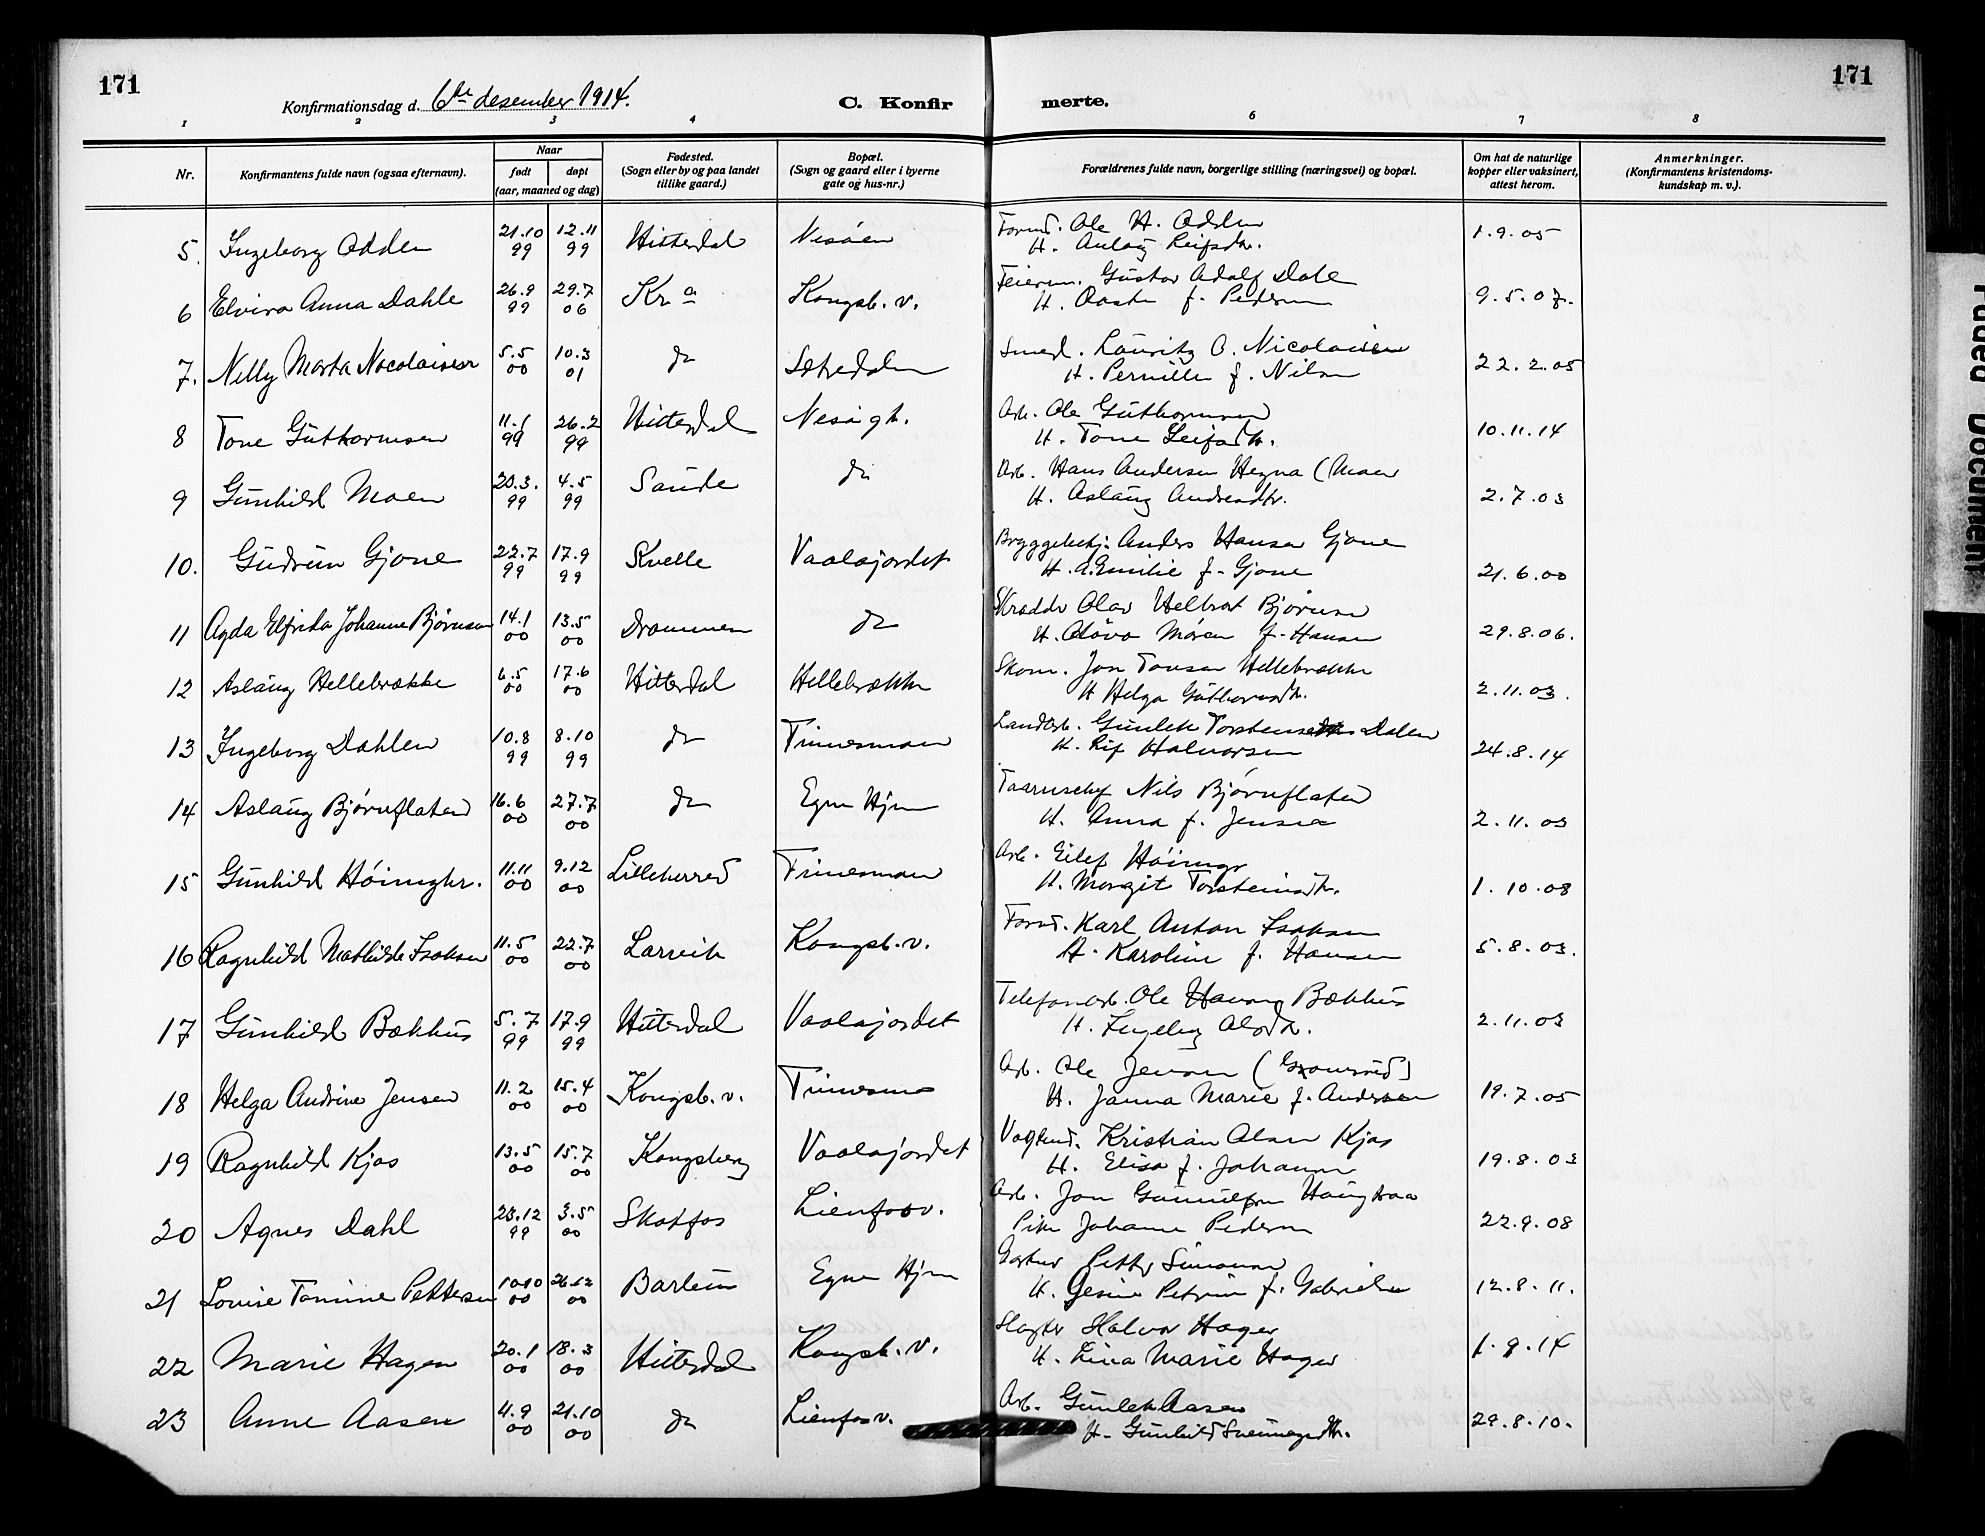 171
Konfirmationsdag d. 6te desember 1914.
C. Konfir merte.
171
1 2 3 4 5 6 7 8
Nr.
Konfirmantens fulde navn (ogsaa efternavn).
Naar
født døpt
(aar, maaned og dag)
Fødested.
(Sogn eller by og paa landet
tillike gaard.)
Bopæl.
(Sogn og gaard eller i byerne
gate og hus-nr.)
Forældrenes fulde navn, borgerlige stilling (næringsvei) og bopæl.
Om hat de naturlige
kopper eller vaksinert,
attest herom.
Anmerkninger.
(Konfirmantens kristendoms-
kundskap m. v.).
5. Ingeborg Odden 21.10 99 12.11 99 Hitterdal Nesøen Form. Ole H. Odden 1.9.05
H. Aslaug Leifsdtr.
6 Elvira Anna Dahle 26.9 99 29.7 06 Kr a Kongsb. v. Feierm. Gustav Adolf Dale 9.5.07.
H. Aaste f. Pedersen
7. Nelly Marta Nocolaisen 5.5 00 10.3 01 do Setredalen Smed. Lauritz O. Nicolaisen 22.2.05
H. Pernille f. Nilsen
8 Tone Guthormsen 11.1 99 26.2 99 Hitterdal Nesøgt. Arb. Ole Guthormsen 10.11.14
H. Tone Leifsdtr.
9 Gunhild Moen 20.3. 99 4.5 99 Saude do Arb. Hans Andersen Hegna (Moen 2.7.03
H. Aslaug Andreasdtr.
10. Gudrun Gjone 22.7 99 17.9 99 Kvelle Vaalajordet Bryggebetj. Anders Hansen Gjone 21.6.00
H. A. Emilie f. Gjone
11 Agda Elfrida Johanne Bjørnsen 14.1 00 13.5 00 Drammen do Skrædder Olav Helbrat Bjørnsen 29.8.06.
H. Maren f. Hansen
12 Aslaug Hellebrække 6.5 00 17.6 00 Hitterdal Hellebrække Skom. Jon Tovsen Hellebrække 2.11.03.
H Helga Guthormsdtr.
13 Ingeborg Dahlen 10.8 99 8.10 99 do Tinnesmoen Landarb. Gunlek Torstensen Dalen 24.8.14
H. Liv Halvorsen
14 Aslaug Bjørnflaten 16.6 00 27.7 00 do Egne Hjem Nils Bjørnflaten 2.11.03
H. Anna f. Jensen
15 Gunhild Høimyhr. 11.11 00 9.12 00 Lilleherred Tinnesmoen Arb. Eilef Høimyr 1.10.08
H. Margit Torsteinsdtr.
16 Ragnhild Mathilde Isaksen 11.5 00 22.7 00 Larvik Kongsb. v. Form. Karl Anton Isaksen 5.8.03.
H. Karoline f. Hansen
17 Gunhild Bækhus 5.7 99 17.9 99 Hitterdal Vaalajordet Telefonarb. Ole Hansen Bækhus 2.11.03
H. Ingebjørg Olsdtr.
18 Helga Andrine Jensen 11.2 00 15.4 00 Kongsb. v. Tinnesmo Arb. Ole Jensen 19.7.05
H. Janna Marie f. Andersen
19 Ragnhild Kjos 13.5 00 15.7 00 Kongsberg Vaalajordet Kristian Olsen Kjos 19.8.03
H. Elisa f. Johansen
20 Agnes Dahl 23.12 99 3.5 00 Skotfos Lienfosv. Arb. Jon Gunnulfsen Haugkaas 22.9.08
Pike Johanne Pedersen
21 Lovise Tomine Pettersen 10.10 00 26.12 00 Barbu Egne Hjem Gartner Petter Simonsen 12.8.11.
H. Gesine Petrine f. Gabrielsen
22 Marie Hagen 20.1 00 18.3 00 Hitterdal Kongsb. v. Slagter Halvor Hagen 1.9.14
H. Lina Marie Hagen
23 Anne Aasen 4.9 00 21.10 00 do Lienfosv. Arb. Gunlek Aasen 29.8.10.
H. Gunhild Sveinungsdtr.